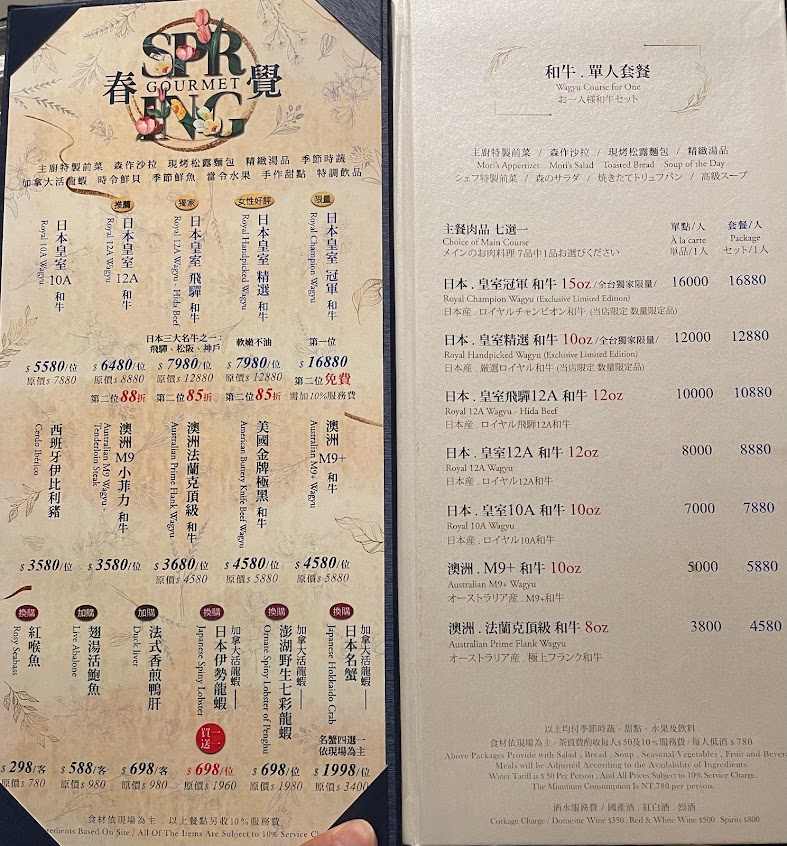 SPR
GOURMET
ING
春 覺
主廚特製前菜 森作沙拉 現烤松露麵包 精緻湯品 季節時蔬
加拿大活龍蝦 時令鮮貝 季節鮮魚 當令水果 手作甜點 特調飲品
日本皇室 10A 和牛
Royal 10A Wagyu
$5580/位
原價$7880
推薦
日本皇室 12A 和牛
Royal 12A Wagyu
$6480/位
原價$8880
第二位88折
獨家
日本皇室 飛驒 和牛
Royal 12A Wagyu - Hida Beef
日本三大名牛之一：
飛驒、松阪、神戶
$7980/位
原價$12880
第二位85折
女性好評
日本皇室 精選 和牛
Royal Handpicked Wagyu
軟嫩不油
$7980/位
原價$12880
第二位85折
限量
日本皇室 冠軍 和牛
Royal Champion Wagyu
第一位
$16880
第二位免費
需加10%服務費
西班牙伊比利豬
Cerdo Ibérico
$3580/位
澳洲 M9 小菲力 和牛
Australian M9 Wagyu -
Tenderloin Steak
$3580/位
澳洲法蘭克頂級 和牛
Australian Prime Flank Wagyu
$3680/位
原價$4580
美國金牌極黑 和牛
American Buttery Knife Beef Wagyu
$4580/位
原價$5880
澳洲 M9+ 和牛
Australian M9+ Wagyu
$4580/位
原價$5880
換購
紅喉魚
Rosy Seabass
$298/客
原價$780
加購
翅湯活鮑魚
Live Abalone
$588/客
原價$980
加購
法式香煎鴨肝
Duck liver
$698/客
原價$980
換購
加拿大活龍蝦
日本伊勢龍蝦
Japanese Spiny Lobster
買一送一
$698/位
原價$1960
換購
加拿大活龍蝦
澎湖野生七彩龍蝦
Ornate Spiny Lobster of Penghu
$698/位
原價$1980
換購
加拿大活龍蝦
日本名蟹
Japanese Hokkaido Crab
名蟹四選一
依現場為主
$1998/位
原價$3400
食材依現場為主 以上餐點另收10%服務費
redients Based On Site / All Of The Items Are Subject to 10% Service Ch
和牛 . 單人套餐
Wagyu Course for One
お一人様和牛セット
主廚特製前菜 / 森作沙拉 / 現烤松露麵包 / 精緻湯品
Mori's Appertizer Mori's Salad Toasted Bread Soup of the Day
シェフ特製前菜 / 森のサラダ / 焼きたてトリュフパン / 高級スープ
主餐肉品 七選一 單點/人 套餐/人
Choice of Main Course À la carte Package
メインのお肉料理 7品中1品お選びください 単品/1人 セット/1人
日本 . 皇室冠軍 和牛 15oz /全台獨家限量/ 16000 16880
Royal Champion Wagyu (Exclusive Limited Edition)
日本産 . ロイヤルチャンピオン和牛 (当店限定 数量限定品)
日本 . 皇室精選 和牛 10oz /全台獨家限量/ 12000 12880
Royal Handpicked Wagyu (Exclusive Limited Edition)
日本産 . 厳選ロイヤル和牛 (当店限定 数量限定品)
日本 . 皇室飛驒12A 和牛 12oz 10000 10880
Royal 12A Wagyu - Hida Beef
日本産 . ロイヤル飛驒12A和牛
日本 . 皇室12A 和牛 12oz 8000 8880
Royal 12A Wagyu
日本産 . ロイヤル12A和牛
日本 . 皇室10A 和牛 10oz 7000 7880
Royal 10A Wagyu
日本産 . ロイヤル10A和牛
澳洲 . M9+ 和牛 10oz 5000 5880
Australian M9+ Wagyu
オーストラリア産 . M9+和牛
澳洲 . 法蘭克頂級 和牛 8oz 3800 4580
Australian Prime Flank Wagyu
オーストラリア産 . 極上フランク和牛
以上均付季節時蔬、甜點、水果及飲料
食材依現場為主/茶資費酌收每人$50及10%服務費/每人低酒$780
Above Packages Provide with Salad , Bread , Soup , Seasonal Vegetables , Fruit and Bevera
Meals will be Adjusted According to the Availability of Ingredients.
Water Tariff is $ 50 Per Person , And All Prices Subject to 10% Service Charge.
The Minimum Consumption Is NT.780 per person.
酒水服務費 / 國產酒 . 紅白酒 . 烈酒
Corkage Charge / Domestic Wine $350 . Red & White Wine $500 . Spirits $800